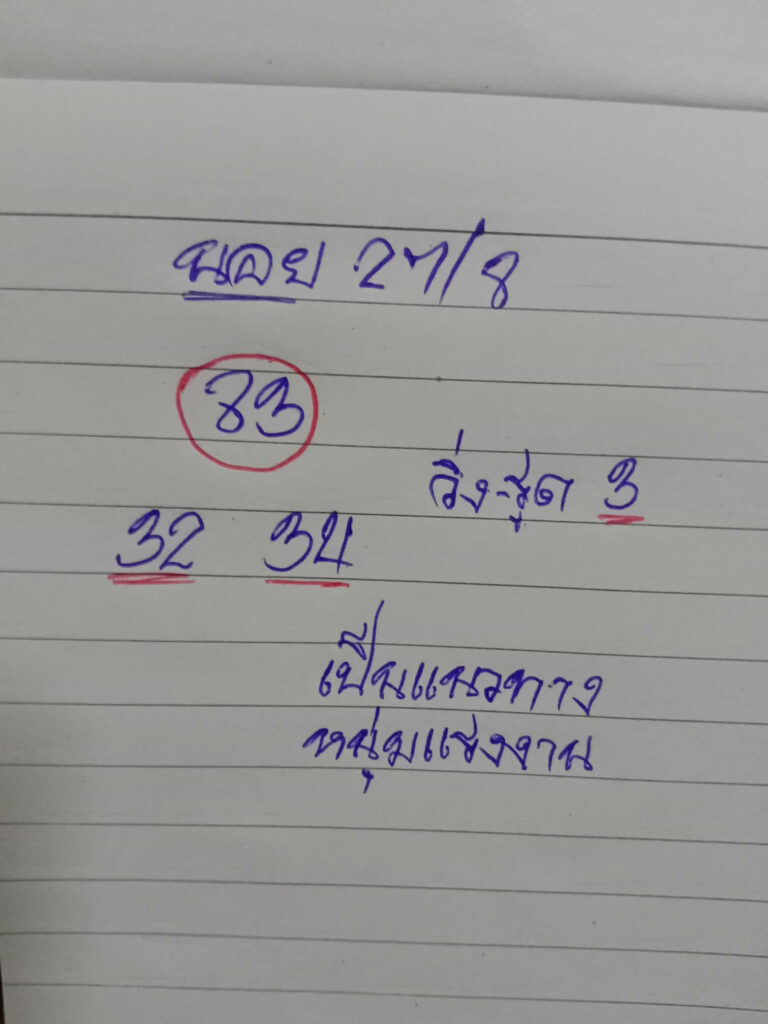 นอย 27/8
83
วิ่ง-รูด 3
32 34
เป็นแนวทาง
หนุ่มแรงงาน